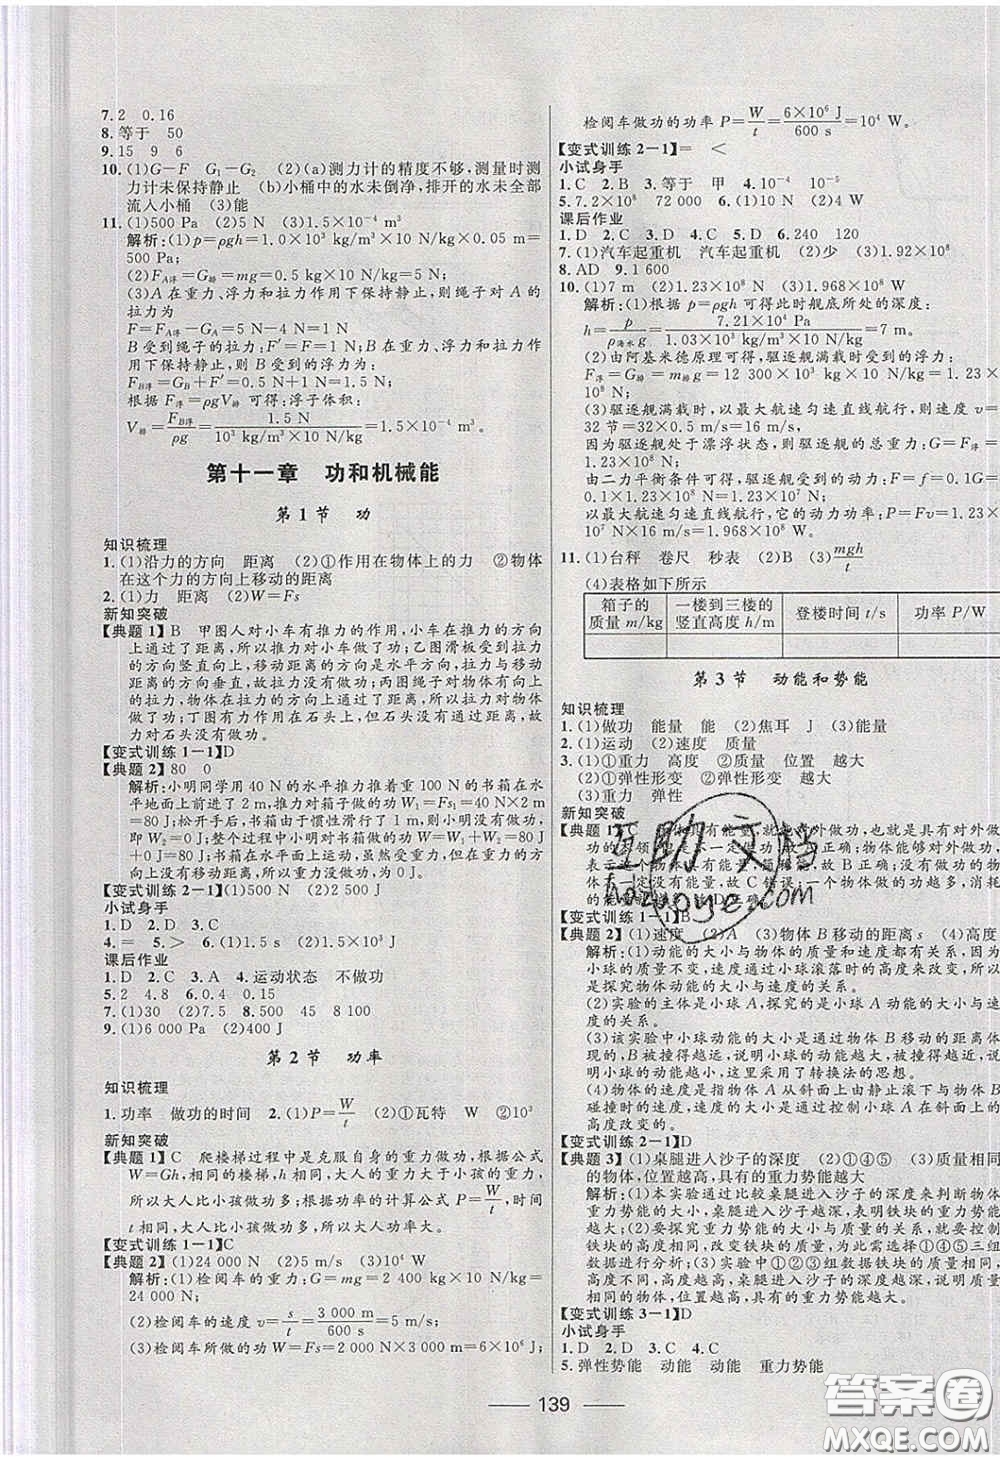 7.2　0.16
8.等于　50
9.15　9　6
10.(1)G－F　G₁－G₂　(2)(a)测力计的精度不够,测量时测
力计未保持静止　(b)小桶中的水未倒净,排开的水未全部
流入小桶　(3)能
11.(1)500 Pa　(2)5 N　(3)1.5×10⁻⁴ m³
解析:(1)p=ρgh=1.0×10³ kg/m³×10 N/kg×0.05 m=
500 Pa;
(2)F_A浮=G_排=mg=0.5 kg×10 N/kg=5 N;
(3)A在重力、浮力和拉力作用下保持静止,则绳子对A的
拉力为
F=F_A浮－G_A=5 N－4 N=1 N;
B受到绳子的拉力:F′=F=1 N;B在重力、浮力和拉力作
用下保持静止,则B受到的浮力:
F_B浮=G_B+F′=0.5 N+1 N=1.5 N;
根据F_浮=ρgV_排可得:浮子体积:
V_排=F_B浮/ρg=1.5 N/(10³ kg/m³×10 N/kg)=1.5×10⁻⁴ m³。
第十一章　功和机械能
第1节　功
知识梳理
1.(1)沿力的方向　距离　(2)①作用在物体上的力　②物体
在这个力的方向上移动的距离
2.(1)力　距离　(2)W=Fs
新知突破
【典题1】B　甲图人对小车有推力的作用,小车在推力的方向
上通过了距离,所以推力对小车做了功;乙图滑板受到拉力
的方向竖直向上,移动距离的方向是水平方向,拉力与移动
距离的方向垂直,拉力没有做功;丙图绳子对物体的拉力方
向向上,物体在拉力的方向上通过了距离,所以拉力对物体
做了功;丁图有力作用在石头上,但石头没有通过距离,故推
力对石头没有做功。
【变式训练1－1】D
【典题2】80　0
解析:小明同学用40 N的水平推力推着重100 N的书箱在水
平地面上前进了2 m,推力对箱子做的功W₁=Fs₁=40 N×2 m=
80 J;松开手后,书箱由于惯性滑行了1 m,此时不受推力,所以不做功,
即W₂=0 J;整个过程中小明对书箱做的功W=W₁+W₂=80 J
+0 J=80 J;因为书箱在重力方向没有移动距离,即在竖直
方向的距离为零,所以重力做功为0 J。
【变式训练2－1】(1)500 N　(2)2 500 J
小试身手
1.D　2.D　3.C
4.=　5.＞　6.(1)1.5 s　(2)1.5 J
课后作业
1.D　2.C　3.A　4.运动状态　不做功
5.2　4.8　6.0.4　0.15
7.(1)30　(2)7.5　8.500　45　8 100
9.(1)6 000 Pa　(2)400 J
第2节　功率
知识梳理
1.功率　做功的时间　2.(1)P=W/t　(2)①瓦特　W　②10³
新知突破
【典题1】C　爬楼梯过程中是克服自身的重力做功,根据公式
W=Gh,相同的楼梯,h相同,大人的重力大于小孩的重力,
所以大人比小孩做功多;根据功率的计算公式P=W/t,时间
t相同,大人比小孩做功多,所以大人功率大。
【变式训练1－1】C
【典题2】(1)24 000 N　(2)5 m/s　(3)10⁴ W
解析:(1)检阅车的重力:G=mg=2 400 kg×10 N/kg=
24 000 N;
(2)检阅车的速度v=s/t=3 000 m/600 s=5 m/s;
(3)检阅车所做的功W=Fs=2 000 N×3 000 m=6×10⁶ J;
检阅车做功的功率P=W/t=6×10⁶ J/600 s=10⁴ W。
【变式训练2－1】=　＜
小试身手
1.C　2.B　3.等于　甲　4.10⁻⁴　10⁻⁵
5.7.2×10⁸　72 000　6.(1)10 N　(2)4 W
课后作业
1.D　2.C　3.D　4.C　5.D　6.240　120
7.(1)汽车起重机　汽车起重机　(2)少　(3)1.92×10⁸
8.AD　9.1 600
10.(1)7 m　(2)1.23×10⁸ N　(3)1.968×10⁸ W
解析:(1)根据p=ρgh可得此时舰底所处的深度:
h=p/ρ_海水g=7.21×10⁴ Pa/(1.03×10³ kg/m³×10 N/kg)=7 m。
(2)由阿基米德原理可得,驱逐舰满载时受到的浮力:
F_浮=G_排=m_排g=12 300×10³ kg×10 N/kg=1.23×
10⁸ N。
(3)驱逐舰满载时,以最大航速匀速直线航行,则速度v=
32节=32×0.5 m/s=16 m/s,
因为驱逐舰处于漂浮状态,则驱逐舰的总重力:G=F_浮=
1.23×10⁸ N,
由二力平衡条件可得,驱逐舰受到的动力:F=f=0.1G=
0.1×1.23×10⁸ N=1.23×10⁷ N,
以最大航速匀速直线航行,它的动力功率:P=Fv=1.23×10⁷
N×16 m/s=1.968×10⁸ W。
11.(1)台秤　卷尺　秒表　(2)B　(3)mgh/t
(4)表格如下所示
箱子的质量m/kg　一楼到三楼的竖直高度h/m　登楼时间t/s　功率P/W
第3节　动能和势能
知识梳理
1.(1)做功　能量　能　(2)焦耳　J　(3)能量
2.(1)运动　(2)速度　质量
3.(1)①重力　高度　②质量　位置　越大
(2)①弹性形变　②弹性形变　越大
(3)重力　弹性
新知突破
【典题1】C　物体具有能量,就能够对外做功,也就是具有对外做
【变式训练1－1】B
【典题2】(1)速度　(2)A　(3)物体B移动的距离s　(4)高度
解析:(1)动能的大小与物体的质量和速度都有关,本实验中
小球的质量不变,通过小球滚落时的高度来改变速度,所以
是探究物体动能的大小与速度的关系。
(2)实验的主体是小球A,探究的是小球A动能的大小与速
度的关系。
(3)该实验中小球动能的大小是通过物体B移动的距离体
现的,B被撞得越远,说明小球的动能越大,反之越近,说明
小球的动能越小,这里采用了转换法的思想。
(4)物体的速度是指物体A从斜面上由静止滚下与物体B
碰撞时的速度,其大小是通过控制小球A在斜面上的高度、
高度改变的。
【变式训练2－1】D
【典题3】(1)桌腿进入沙子的深度　(2)①④⑤　(3)质量相同
的物体,位置越高,具有的重力势能越大
解析:(1)本实验通过比较桌腿进入沙子的深度来判断物体
重力势能的大小,桌腿进入沙子的深度越大,表明铁块的重力势能
越大;(2)要探究重力势能的大小与质量的关系,就要控制
铁块的高度相同,改变铁块的质量,为此需选择①④⑤三组
数据进行分析;(3)实验中①②③组数据铁块的质量相同,
高度越高,桌腿进入沙子的深度越大,所以可得结论:质量相
同的物体,位置越高,具有的重力势能越大。
【变式训练3－1】D
小试身手
1.D　2.D　3.C　4.C
5.弹性势能　动能　动能　重力势能
139
互助文档
hazuoye.com
答案圈
MXQE.COM